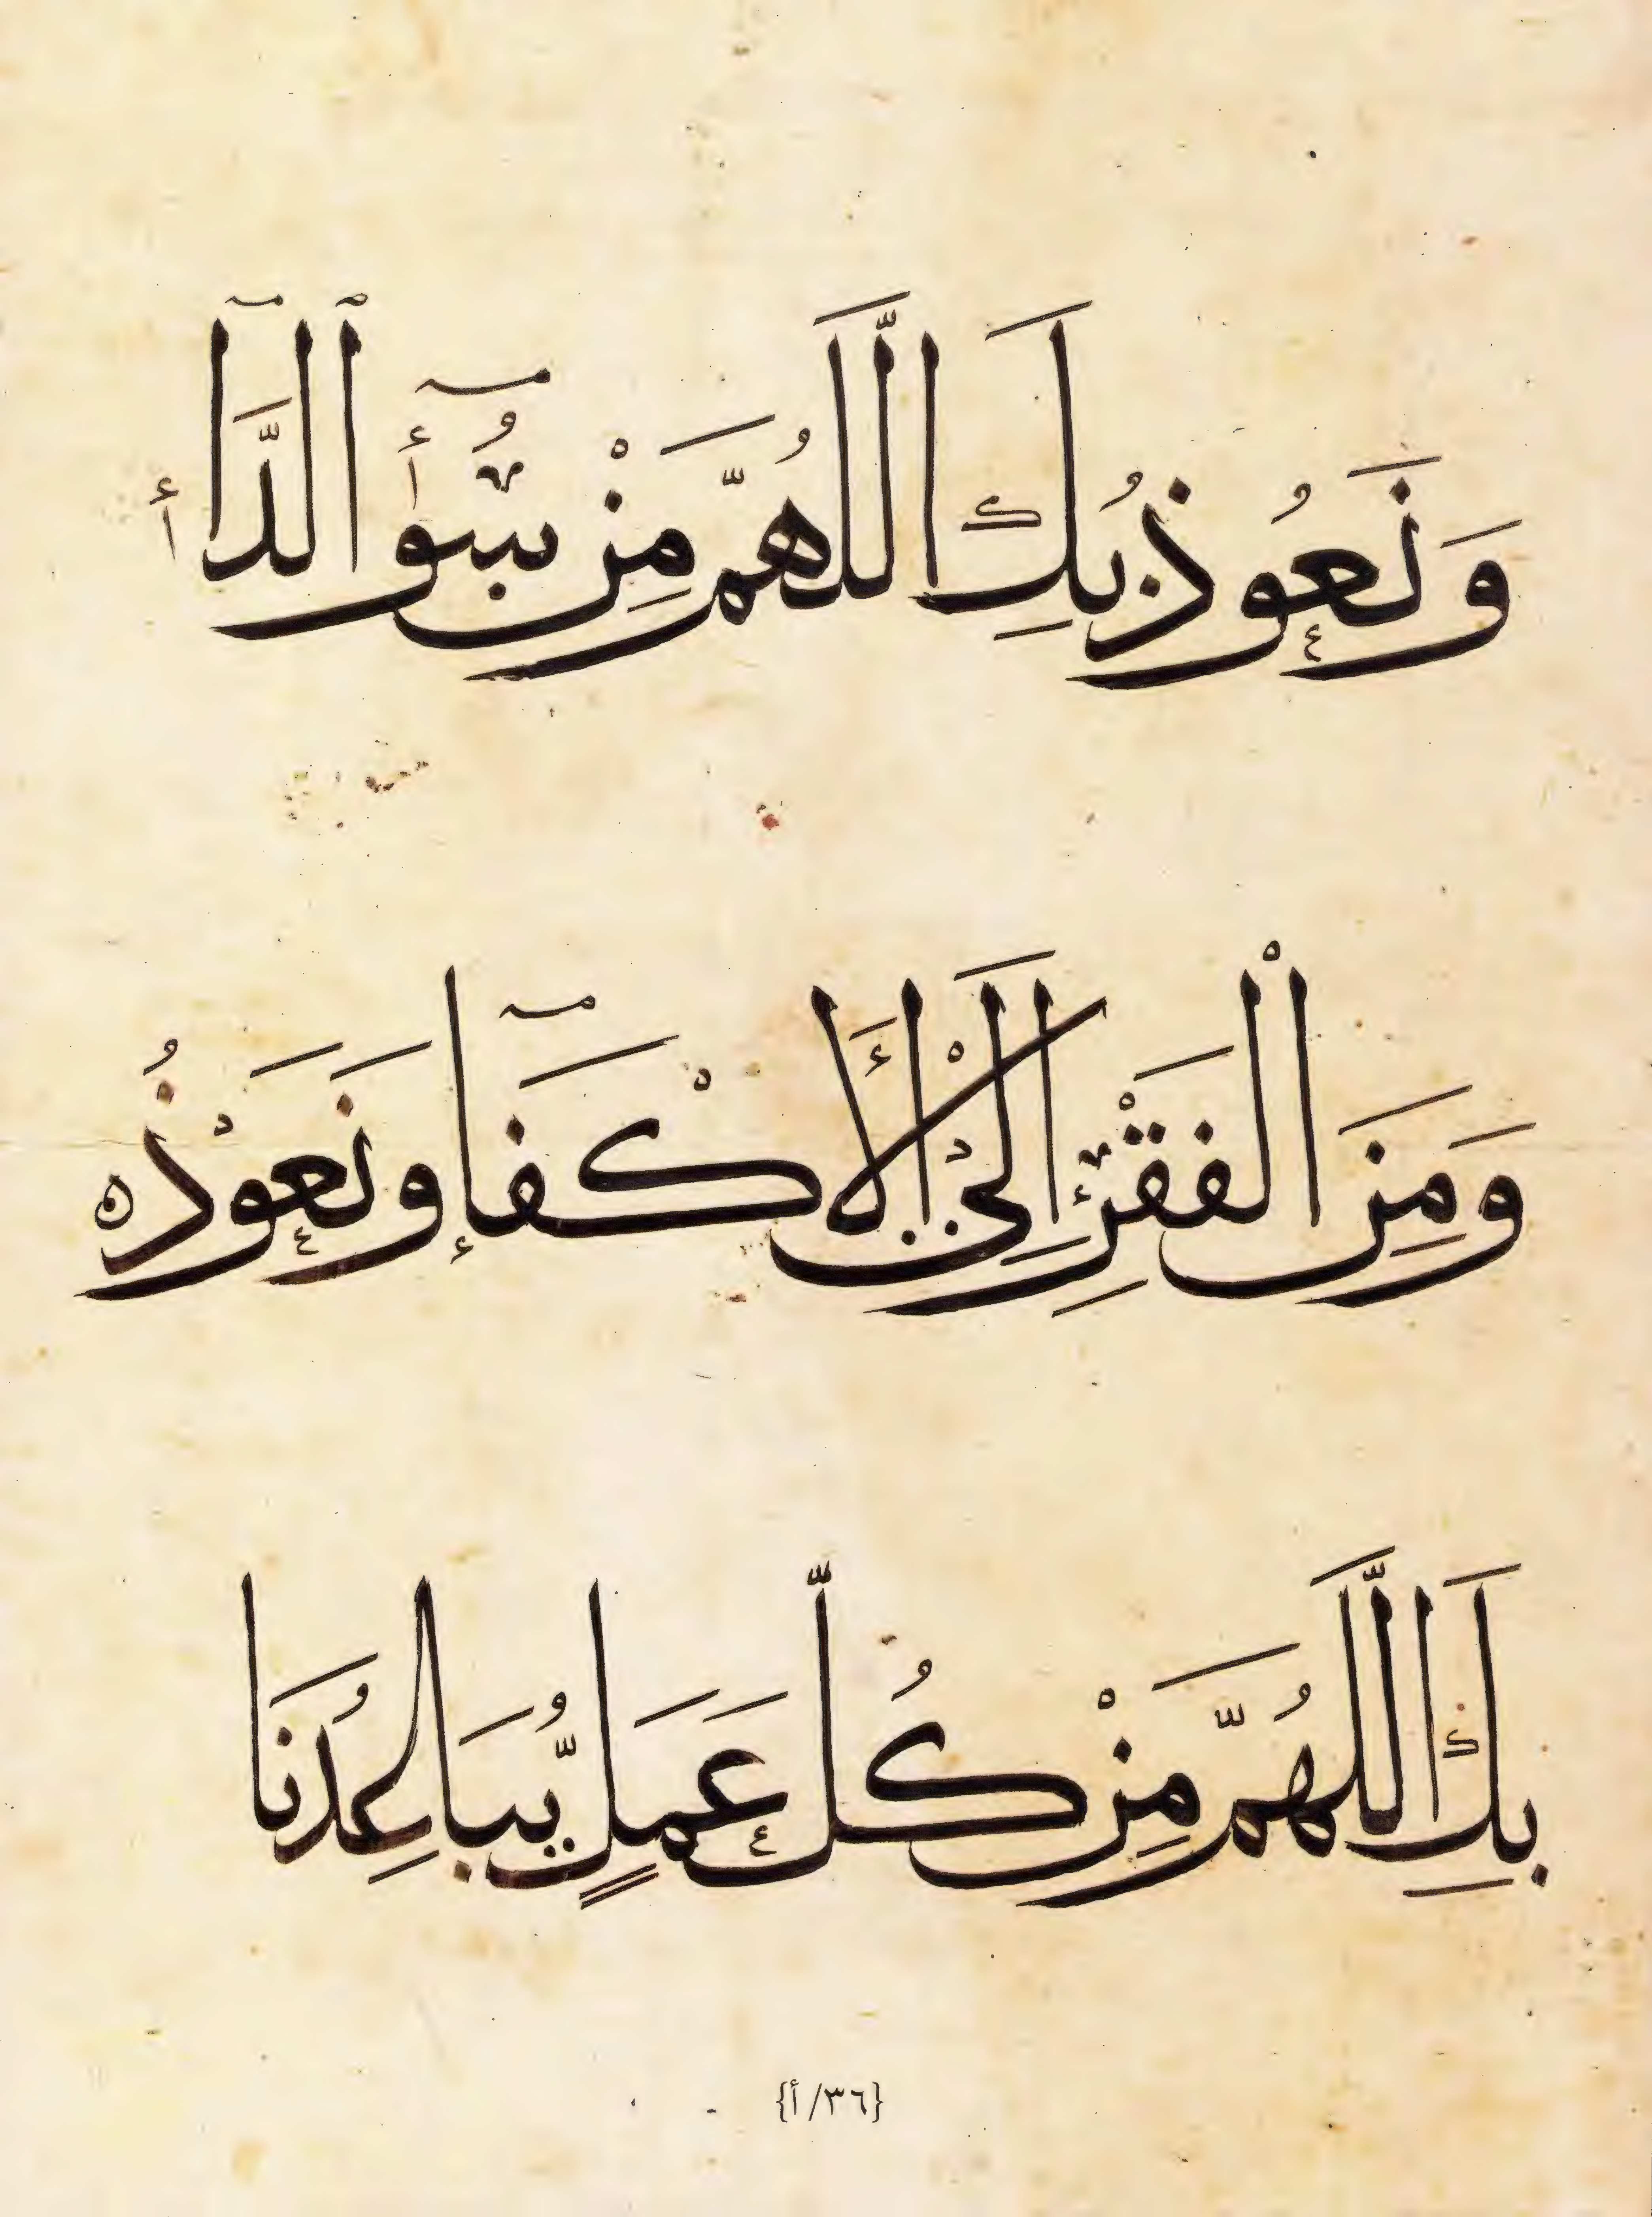 وَنَعُوذُ بِكَ اللَّهُمَّ مِنْ سُوءِ الدَّاءِ
وَمِنَ الْفَقْرِ إِلَى الْأَكْفَاءِ وَنَعُوذُ
بِكَ اللَّهُمَّ مِنْ كُلِّ عَمَلٍ يُبَاعِدُنَا
{٣٦/أ}